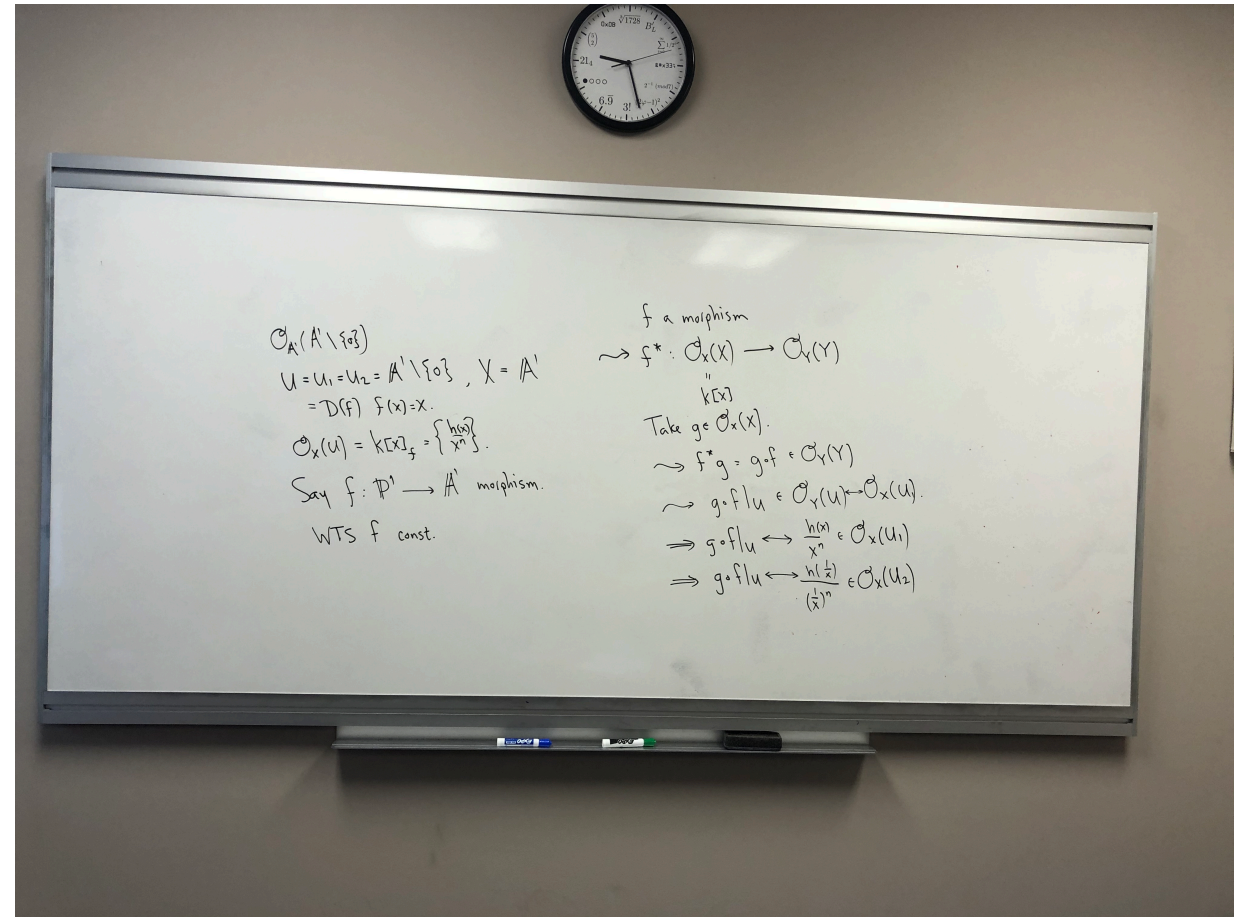 0x0B
∛1728
B'_L
∑ 1/2^i
21₄
6.9̅
3!
2⁻¹ (mod 7)
𝒪_{𝔸¹}(𝔸¹ \ {0})
U = U₁ = U₂ = 𝔸¹ \ {0} , X = 𝔸¹
= D(f) f(x) = x.
𝒪_X(U) = k[x]_f = { h(x)/xⁿ }.
Say f : ℙ¹ ⟶ 𝔸¹ morphism.
WTS f const.
f a morphism
⇝ f* : 𝒪_X(X) ⟶ 𝒪_Y(Y)
"
k[x]
Take g ∈ 𝒪_X(X).
⇝ f*g = g∘f ∈ 𝒪_Y(Y)
⇝ g∘f|_U ∈ 𝒪_Y(U) ↔ 𝒪_X(U₁).
⇒ g∘f|_U ⟷ h(x)/xⁿ ∈ 𝒪_X(U₁)
⇒ g∘f|_U ⟷ h(1/x)/(1/x)ⁿ ∈ 𝒪_X(U₂)
EXPO
EXPO